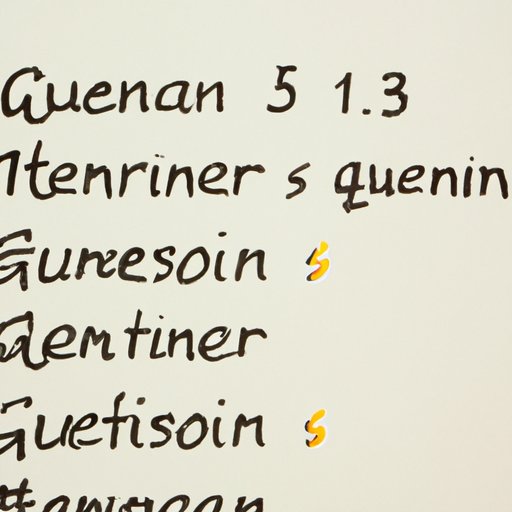 Quenan 5 1.3
Itenriner s quenin
Gureesoin s
Qemtiner
Guefisoin s